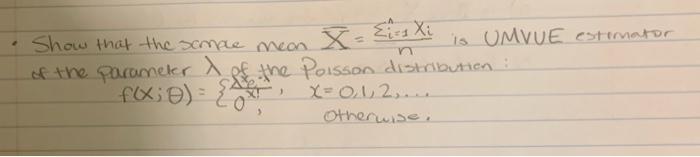 • Show that the sample mean X̄ = Σᵢ₌₁ⁿ Xᵢ / n is UMVUE estimator
of the parameter λ of the Poisson distribution :
f(x;θ) = { λˣe⁻λ / x! , x = 0,1,2,...
0 , otherwise.